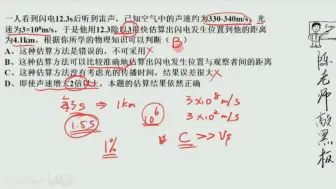 一人看到闪电12.3s后听到雷声，已知空气中的声速约为330-340m/s，光
速为3×10⁸m/s，于是他用12.3除以3很快估算出闪电发生位置到他的距离
为4.1km，根据你所学的物理知识可以判断（B）
A、这种估算方法是错误的，不可采用 ×
B、这种估算方法可以比较准确地估算出闪电发生位置与观察者间的距离
C、这种估算方法没有考虑光的传播时间，结果误差很大 ×
D、即使声速增大2倍以上，本题的估算结果依然正确
每3s ⇒ 1km
3×10⁸m/s
10⁶
3×10²m/s
1.5s
1%
C >>
陈老师敲黑板